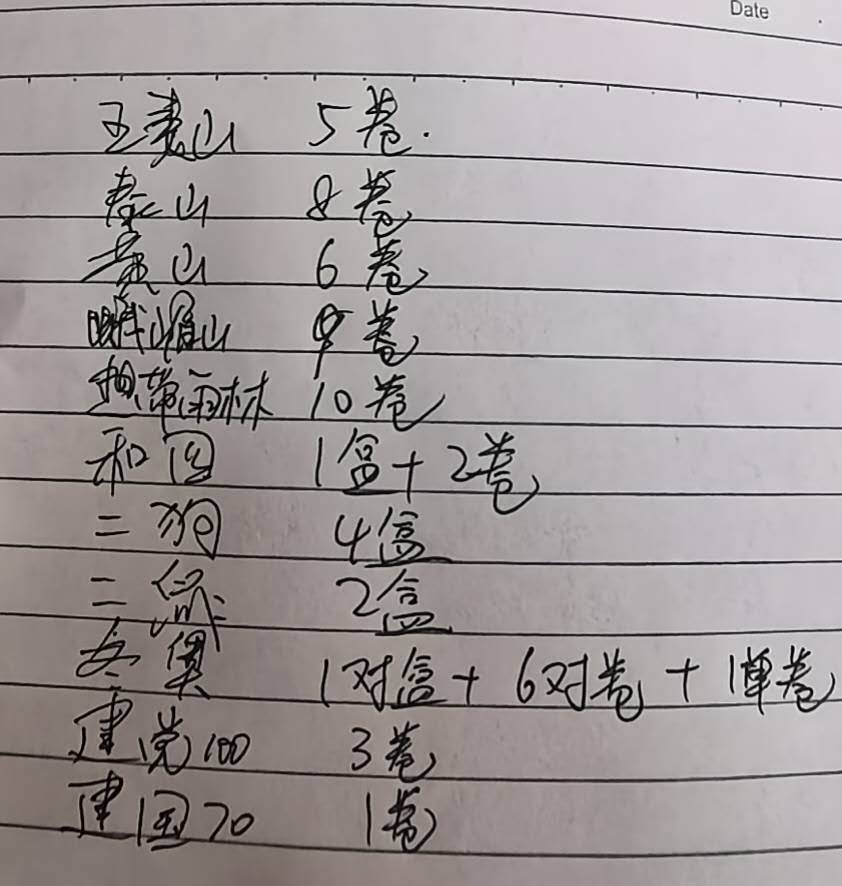 Date
五夷山 5卷.
泰山 8卷
黄山 6卷
峨嵋山 9卷
热带雨林 10卷
和国 1盒+2卷
二狗 4盒
二鼠 2盒
冬奥 1对盒+6对卷+1单卷
建党100 3卷
建国70 1卷